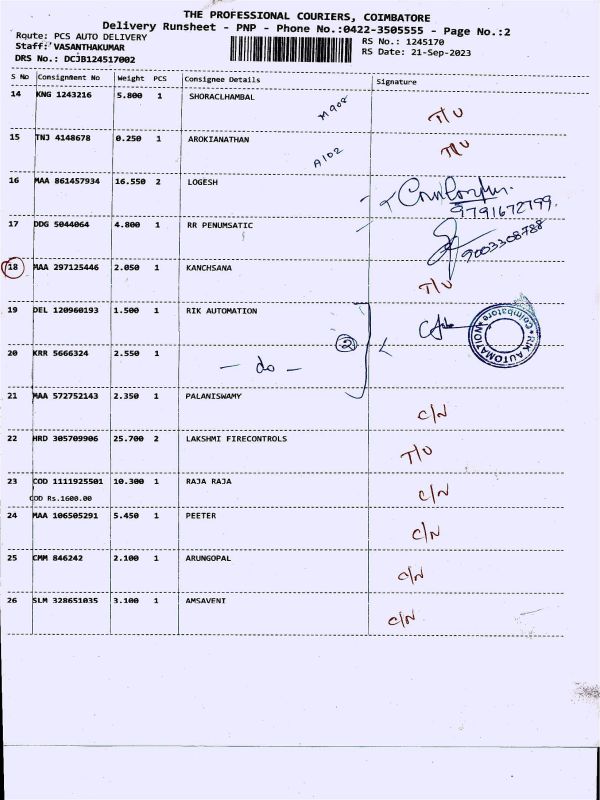 THE PROFESSIONAL COURIERS, COIMBATORE
Delivery Runsheet - PNP - Phone No.:0422-3505555 - Page No.:2
Route: PCS AUTO DELIVERY
Staff: VASANTHAKUMAR
DRS No.: DCJB124517002
RS No.: 1245170
RS Date: 21-Sep-2023
S No Consignment No Weight PCS Consignee Details Signature
14 KNG 1243216 5.800 1 SHORACLHAMBAL M908 T/U
15 TNJ 4148678 0.250 1 AROKIANATHAN A102 T/U
16 MAA 861457934 16.550 2 LOGESH
9791672799
17 DDG 5044064 4.800 1 RR PENUMSATIC 9003308788
18 MAA 297125446 2.050 1 KANCHSANA T/U
19 DEL 120960193 1.500 1 RIK AUTOMATION
RIK AUTOMATION * Coimbatore *
20 KRR 5666324 2.550 1 - do - 2
21 MAA 572752143 2.350 1 PALANISWAMY C/N
22 HRD 305709906 25.700 2 LAKSHMI FIRECONTROLS T/U
23 COD 1111925501 10.300 1 RAJA RAJA C/N
COD Rs.1600.00
24 MAA 106505291 5.450 1 PEETER C/N
25 CMM 846242 2.100 1 ARUNGOPAL C/N
26 SLM 328651035 3.100 1 AMSAVENI C/N